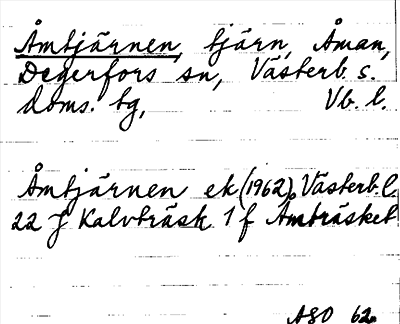 Åmtjärnen, tjärn, Åman,
Degerfors sn, Västerb. s.
doms. tg, Vb. l.
Åmtjärnen ek (1962), Västerb. l.
22 J Kalvträsk 1 f Åmträsket
ASO 62.